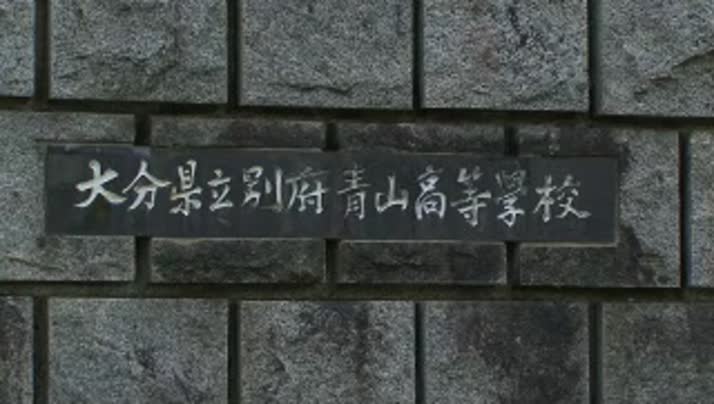 大分県立別府青山高等學校